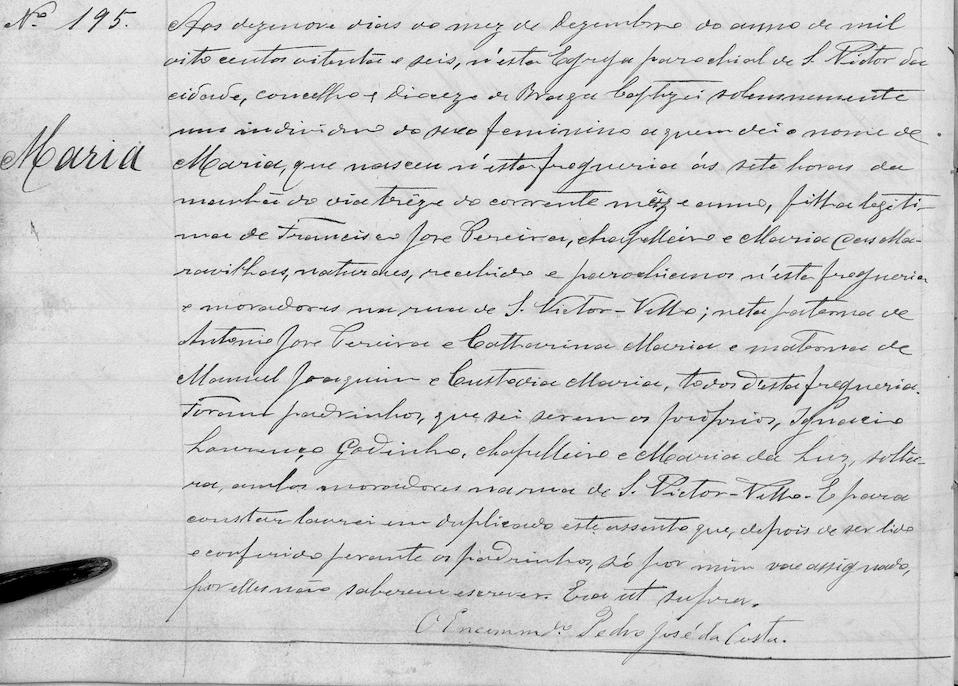 Nº 195.
Maria
Aos dezenove dias do mez de Dezembro do anno de mil
oito centos oitenta e seis, n'esta Egreja parochial de S. Victor da
cidade, concelho e Dioceze de Braga baptizei solemnemente
um individuo do sexo feminino a quem dei o nome de
Maria, que nasceu n'esta freguezia ás sete horas da
manhã do dia trêze do corrente mêz e anno, filha legiti-
ma de Francisco José Pereira, chapelleiro e Maria das Ma-
ravilhas, naturaes, recebidos e parochianos n'esta freguezia
e moradores na rua de S. Victor-Velho; neta paterna de
Antonio José Pereira e Catharina Maria e materna de
Manuel Joaquim e Custodia Maria, todos d'esta freguezia.
Foram padrinhos, que sei serem os proprios, Ignacio
Lourenço Godinho, chapelleiro e Maria da Luz, soltei-
ra, ambos moradores na rua de S. Victor-Velho. E para
constar lavrei em duplicado este assento que, depois de ser lido
e conferido perante os padrinhos, só por mim vae assignado,
por elles não saberem escrever. Era ut supra.
O Encommdo. Pedro José da Costa.